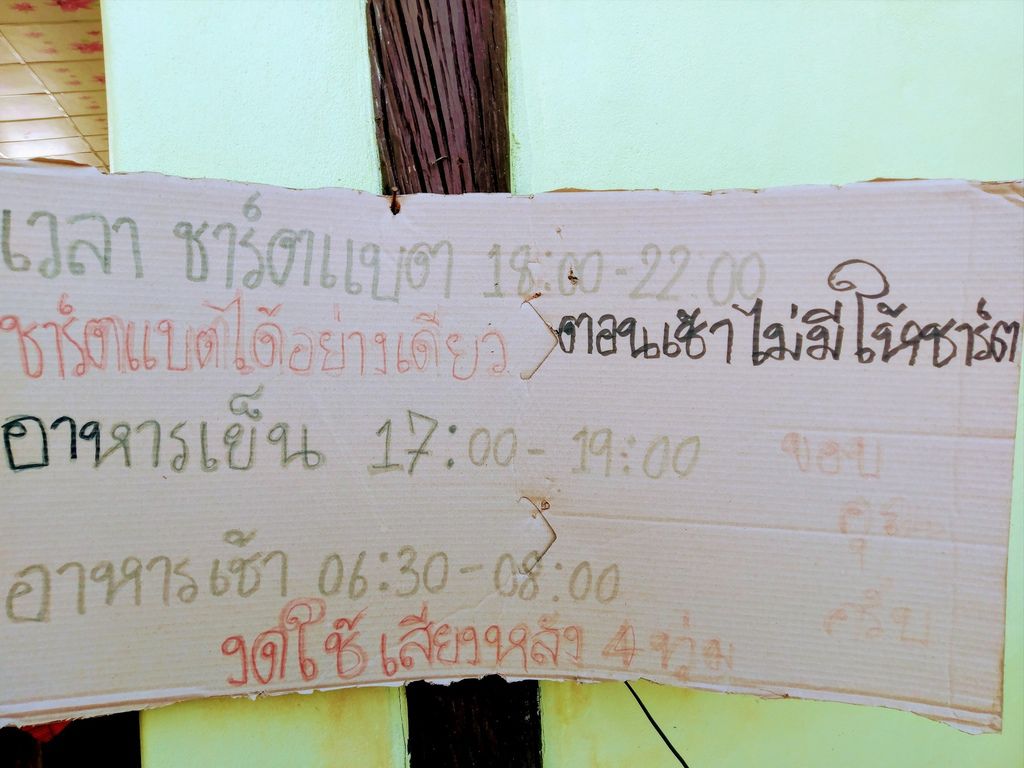 เวลา ชาร์ตแบต 18:00-22:00
ชาร์ตแบตได้อย่างเดียว
ตอนเช้า ไม่มีให้ชาร์ต
อาหารเย็น 17:00- 19:00
อาหารเช้า 06:30-08:00
งดใช้เสียงหลัง 4 ทุ่ม
ขอบ
คุณ
ครับ